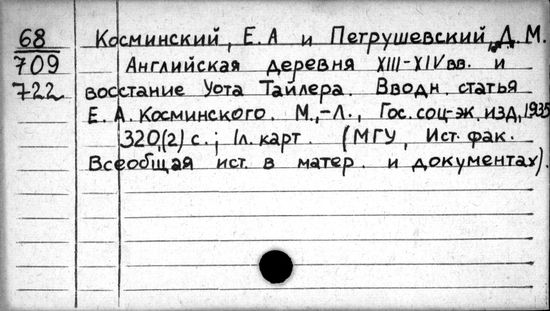 68
709
722
Косминский, Е.А и Петрушевский, Д. М.
Английская деревня XIII-XIV вв. и
восстание Уота Тайлера. Вводн. статья
Е. А. Косминского. М.,-Л., Гос. соц-эк. изд, 1935
320,(2) с.; 1л. карт. (МГУ, Ист. фак.
Всеобщая ист. в матер. и документах).